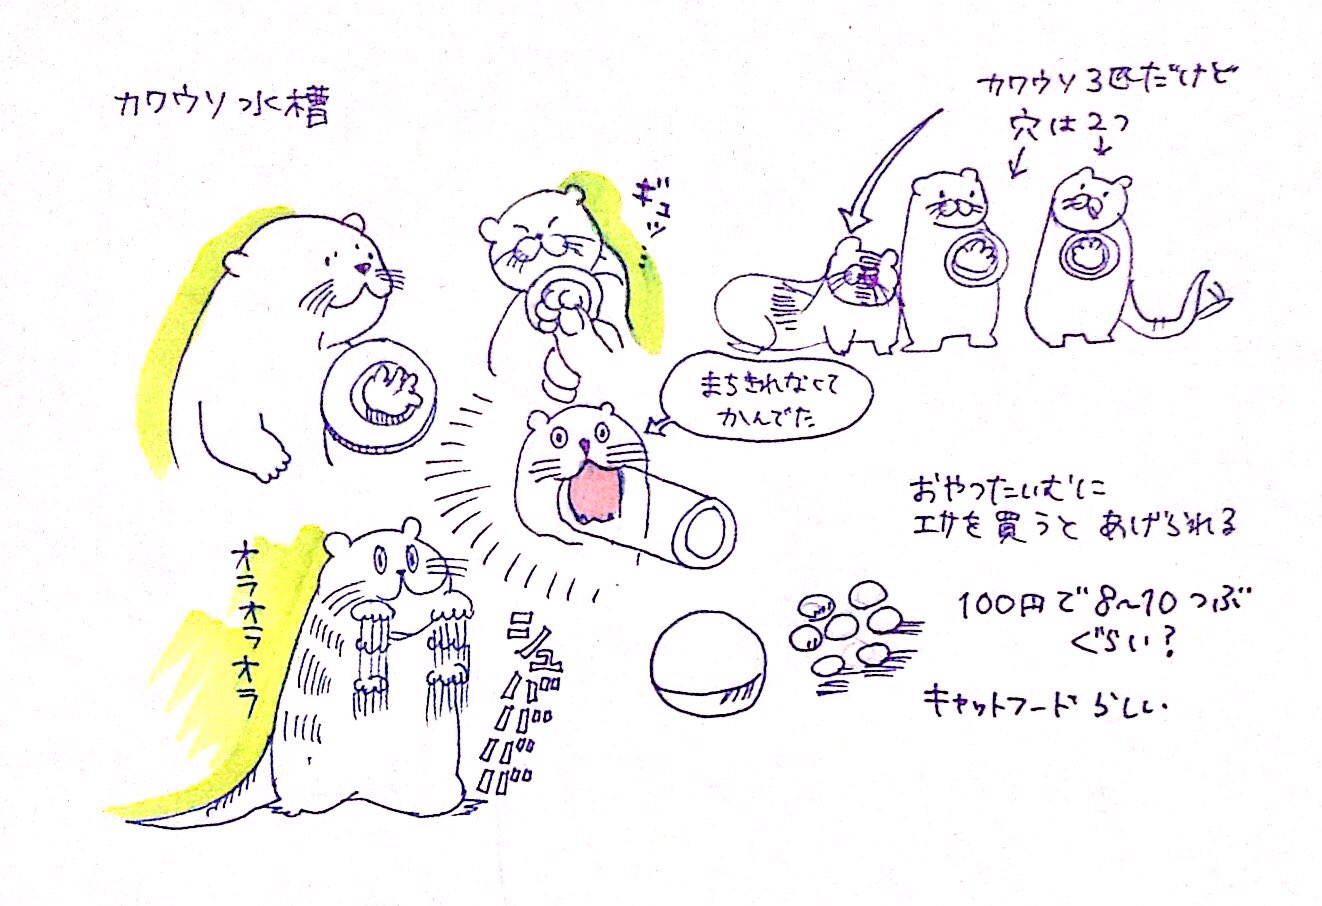 カワウソ水槽
カワウソ3匹だけど
穴は2つ
ギュッ
まちきれなくて
かんでた
おやつたいむに
エサを買うと あげられる
100円で8〜10つぶ
ぐらい?
キャットフードらしい
オラオラオラ
シュババババ